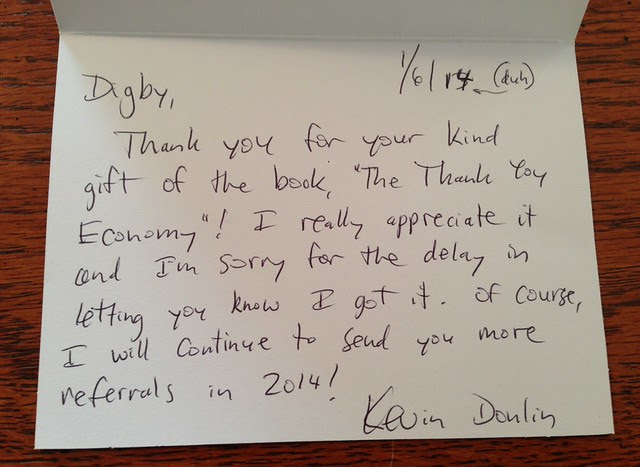 1/6/14 (duh)
Digby,
Thank you for your kind
gift of the book, "The Thank You
Economy"! I really appreciate it
and I'm sorry for the delay in
letting you know I got it. Of course,
I will continue to send you more
referrals in 2014!
Kevin Donlin